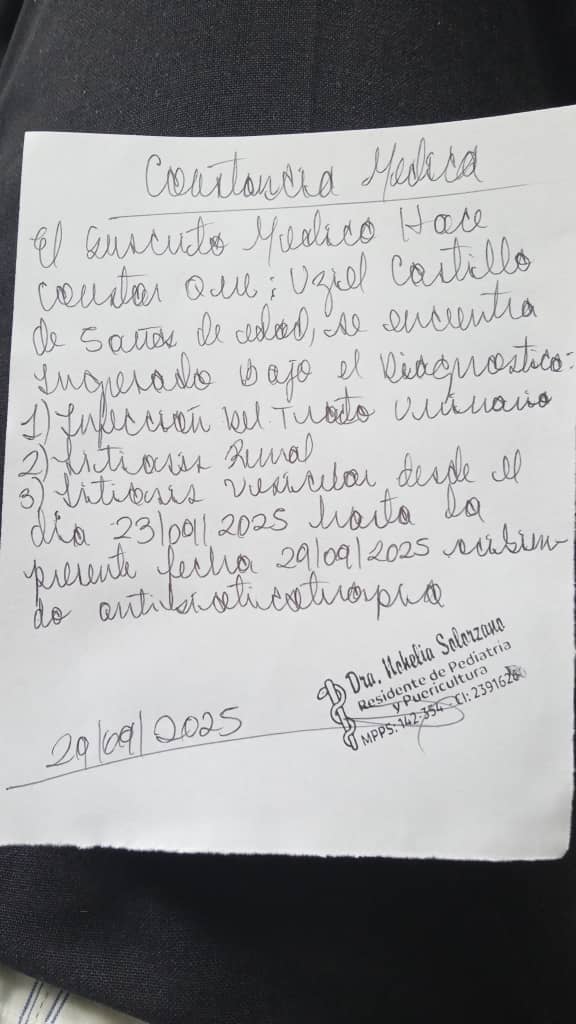 Constancia Medica
El suscrito Medico Hace
constar que; Uziel Castillo
de 5 años de edad, se encuentra
Ingresado bajo el Diagnostico:
1) Infección del Tracto Urinario
2) Litiasis Renal
3) Litiasis vesicular desde el
día 23/09/2025 hasta la
presente fecha 29/09/2025 recibien-
do antibioticoterapia
Dra. Nohelia Solorzano
Residente de Pediatria
y Puericultura
MPPS: 142.354 - CI:
29/09/2025